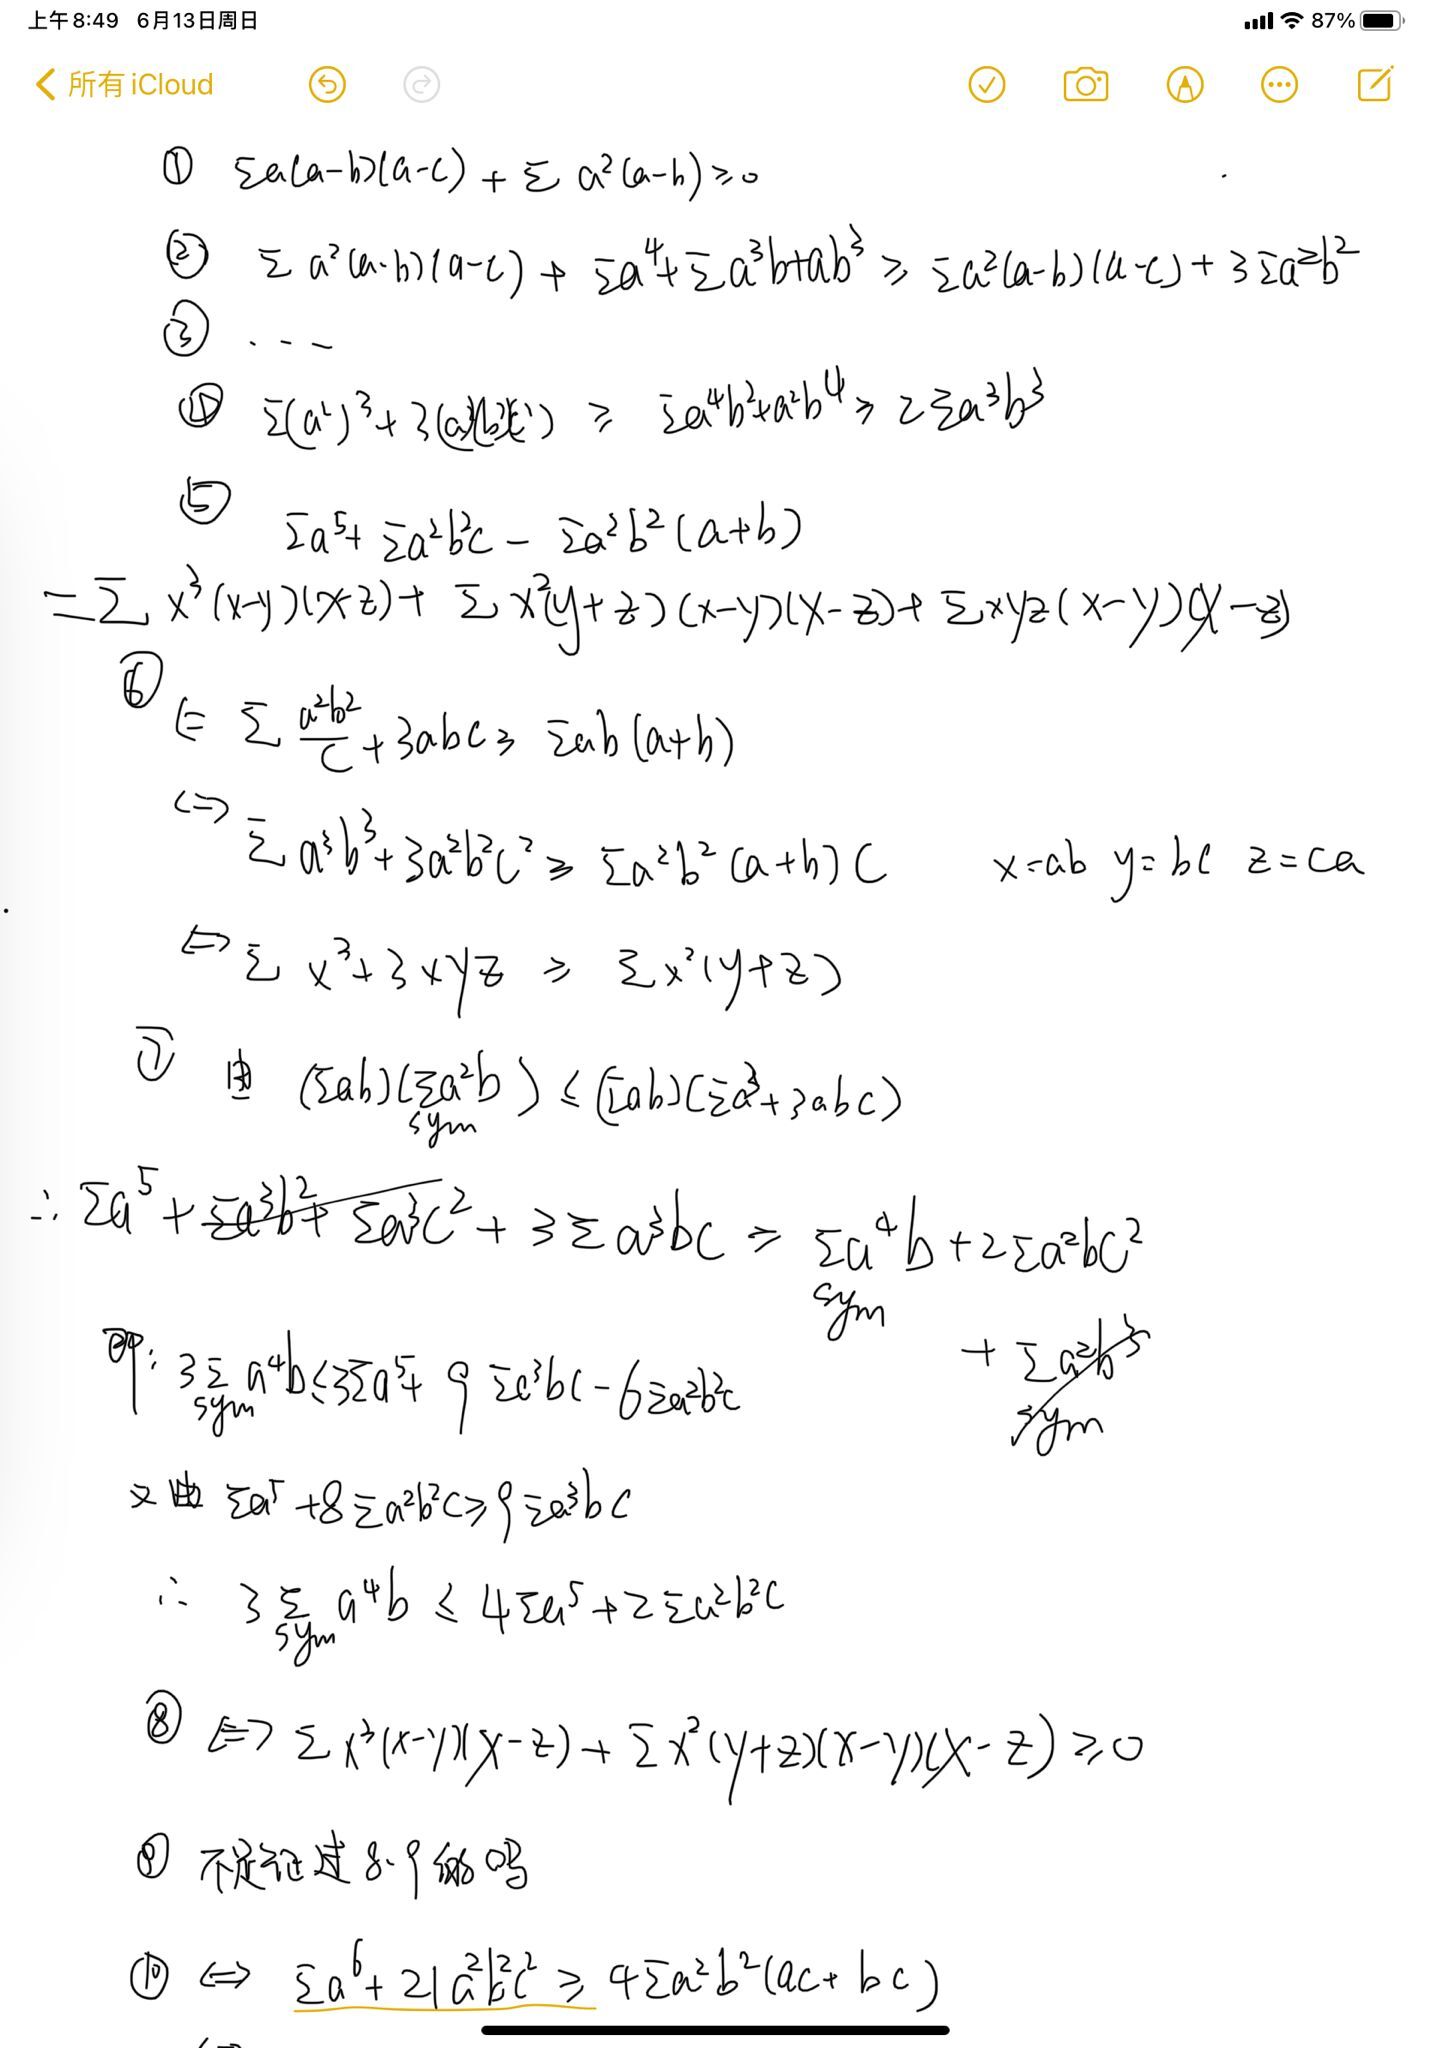 上午8:49 6月13日周日 87%
所有 iCloud
① Σa(a-b)(a-c) + Σ a²(a-b) ≥ 0
② Σ a²(a-b)(a-c) + Σa⁴ + Σa³b+ab³ ≥ Σa²(a-b)(a-c) + 3Σa²b²
③ ...
④ Σ(a²)³ + 3(a²)(b²)(c²) ≥ Σa⁴b²+a²b⁴ ≥ 2Σa³b³
⑤ Σa⁵ + Σa²b²c - Σa²b²(a+b)
= Σ x³(x-y)(x-z) + Σ x²(y+z)(x-y)(x-z) + Σxyz(x-y)(x-z)
⑥ ⇐ Σ a²b²/c + 3abc ≥ Σab(a+b)
⇔ Σ a³b³ + 3a²b²c² ≥ Σa²b²(a+b)c x=ab y=bc z=ca
⇔ Σ x³ + 3xyz ≥ Σx²(y+z)
⑦ 由 (Σab)(Σa²b) ≤ (Σab)(Σa³+3abc)
sym
∴ Σa⁵ + Σa³b² + Σa³c² + 3Σa³bc ≥ Σa⁴b + 2Σa²bc²
sym
+ Σa²b³
sym
即: 3Σa⁴b ≤ 3Σa⁵ + 9Σa³bc - 6Σa²b²c
sym
又由 Σa⁵ + 8Σa²b²c ≥ 9Σa³bc
∴ 3Σa⁴b ≤ 4Σa⁵ + 2Σa²b²c
sym
⑧ ⇔ Σx³(x-y)(x-z) + Σx²(y+z)(x-y)(x-z) ≥ 0
⑨ 不是证过8.9的吗
⑩ ⇔ Σa⁶ + 21a²b²c² ≥ 4Σa²b²(ac+bc)